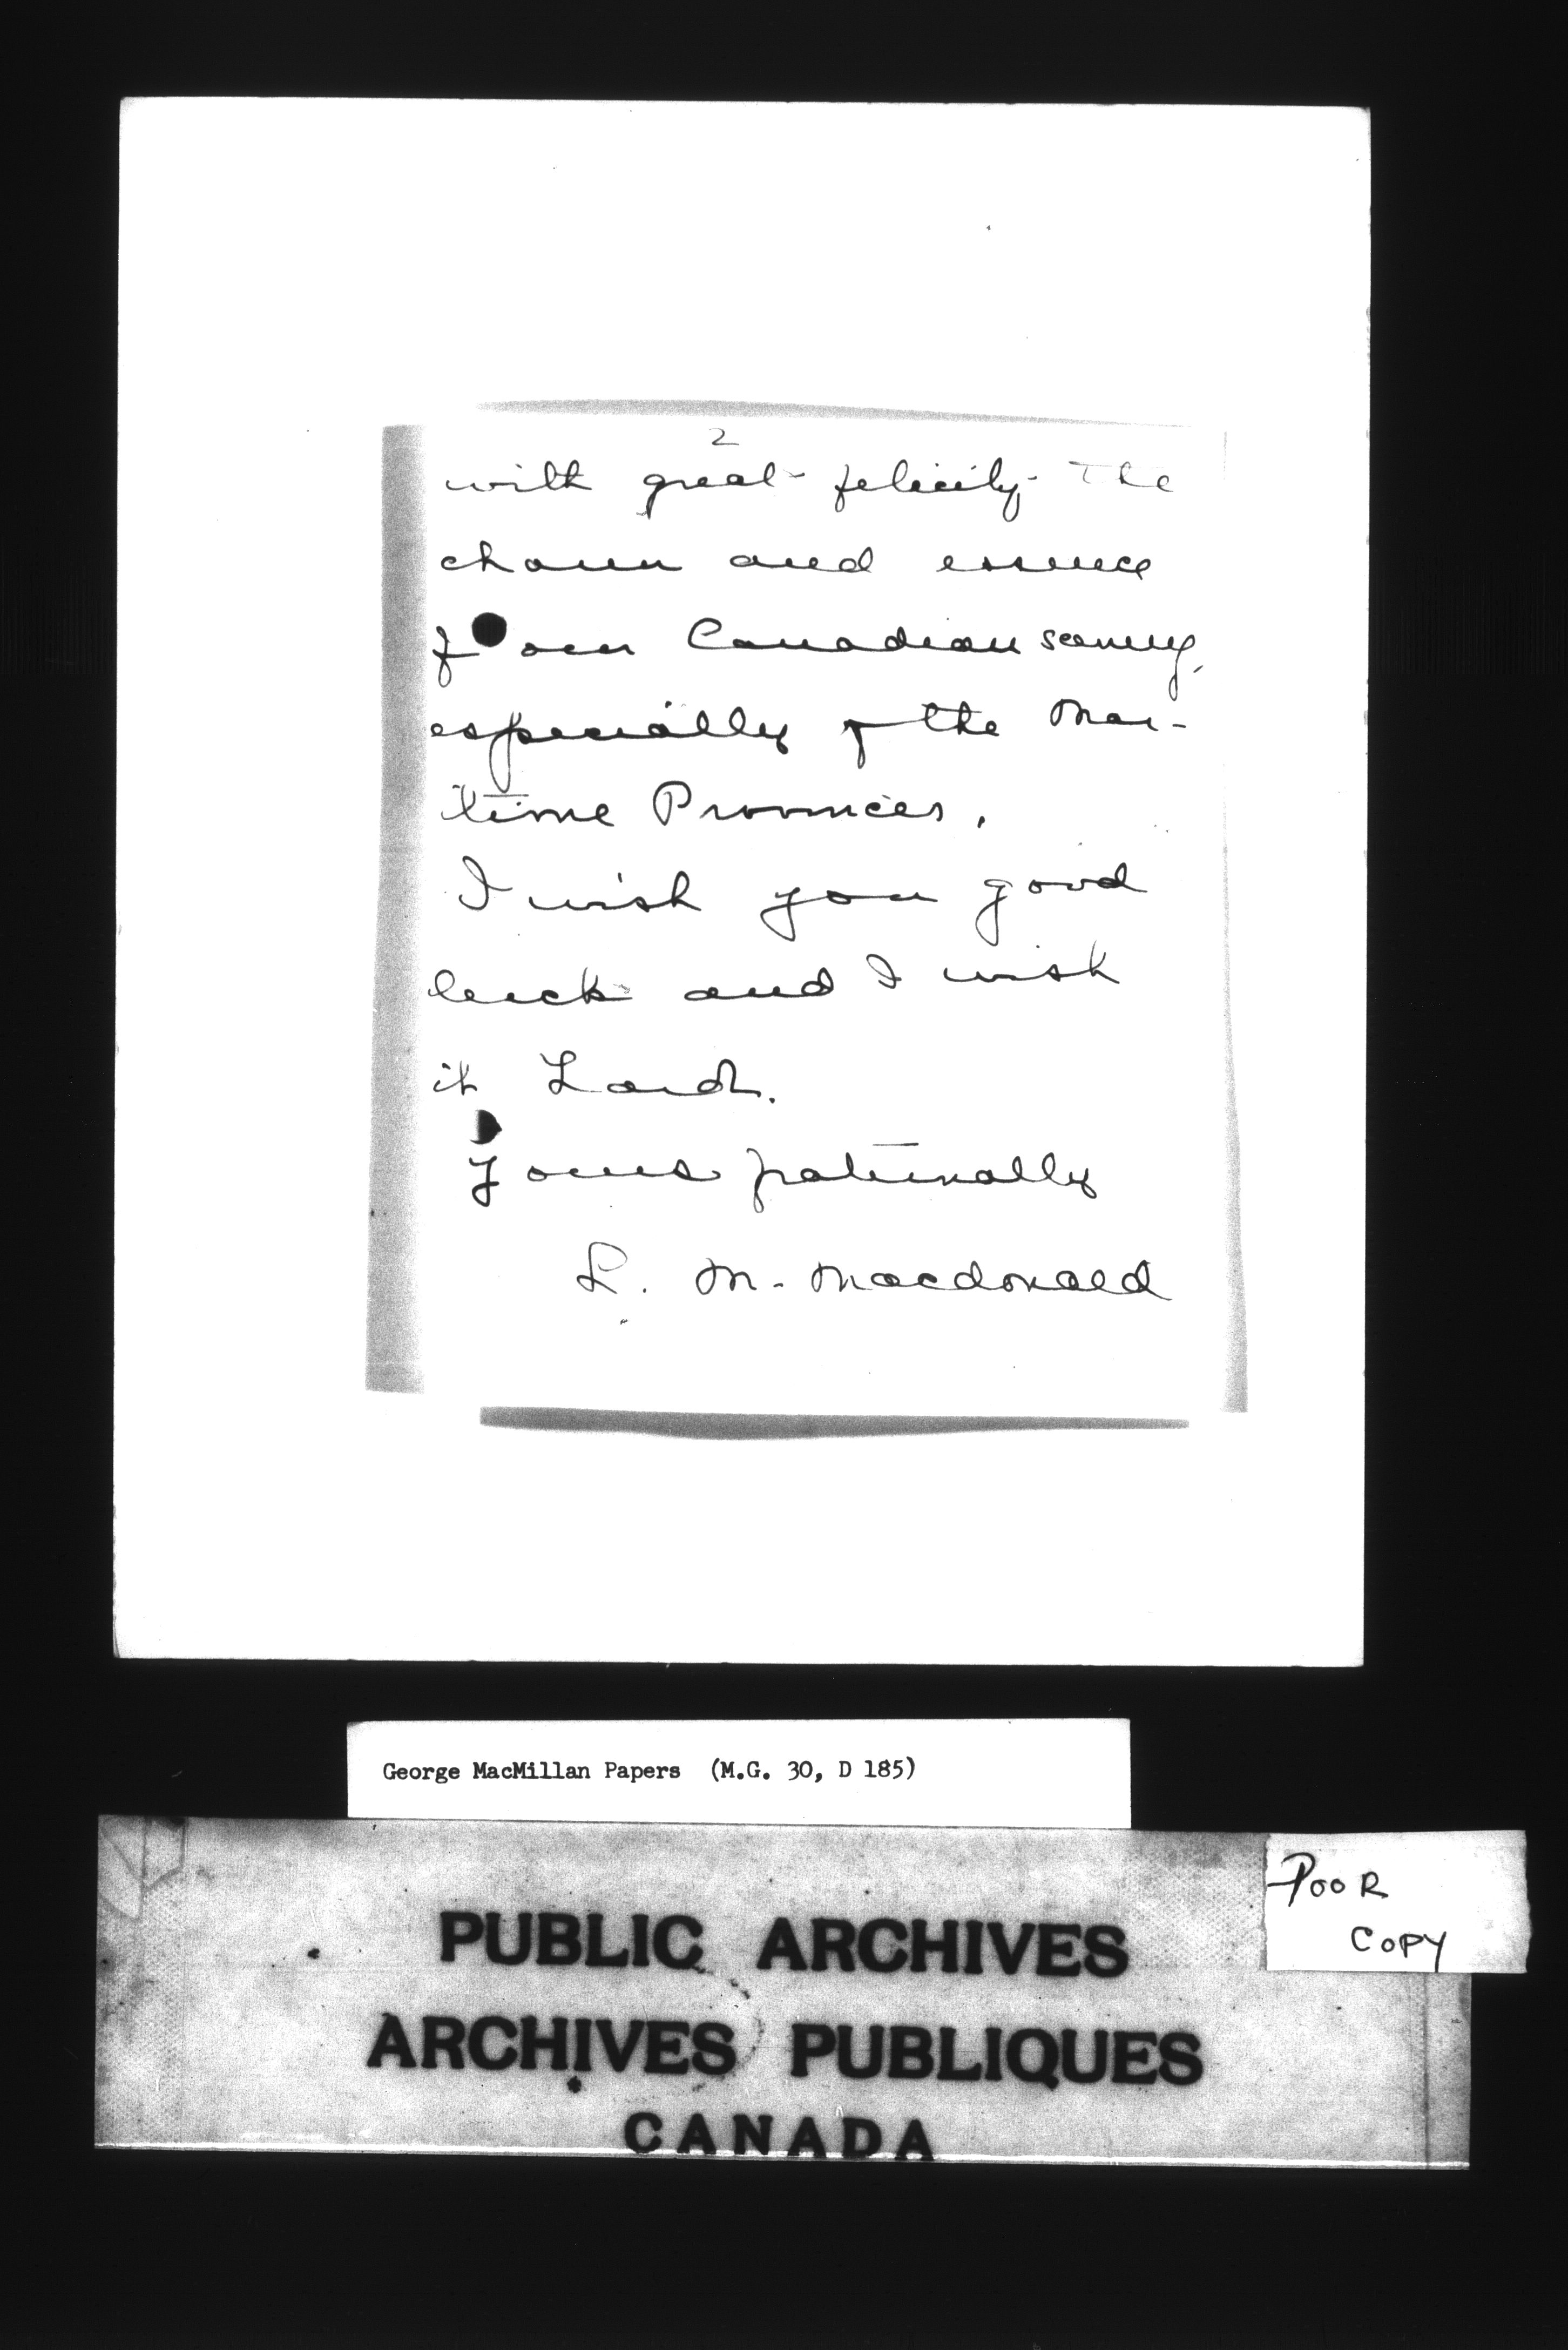 2
with great felicity the
charm and essence
of our Canadian scenery,
especially of the Mar-
itime Provinces.
I wish you good
luck and I wish
it hard.
Yours fraternally
L. M. Macdonald
George MacMillan Papers (M.G. 30, D 185)
POOR
COPY
PUBLIC ARCHIVES
ARCHIVES PUBLIQUES
CANADA